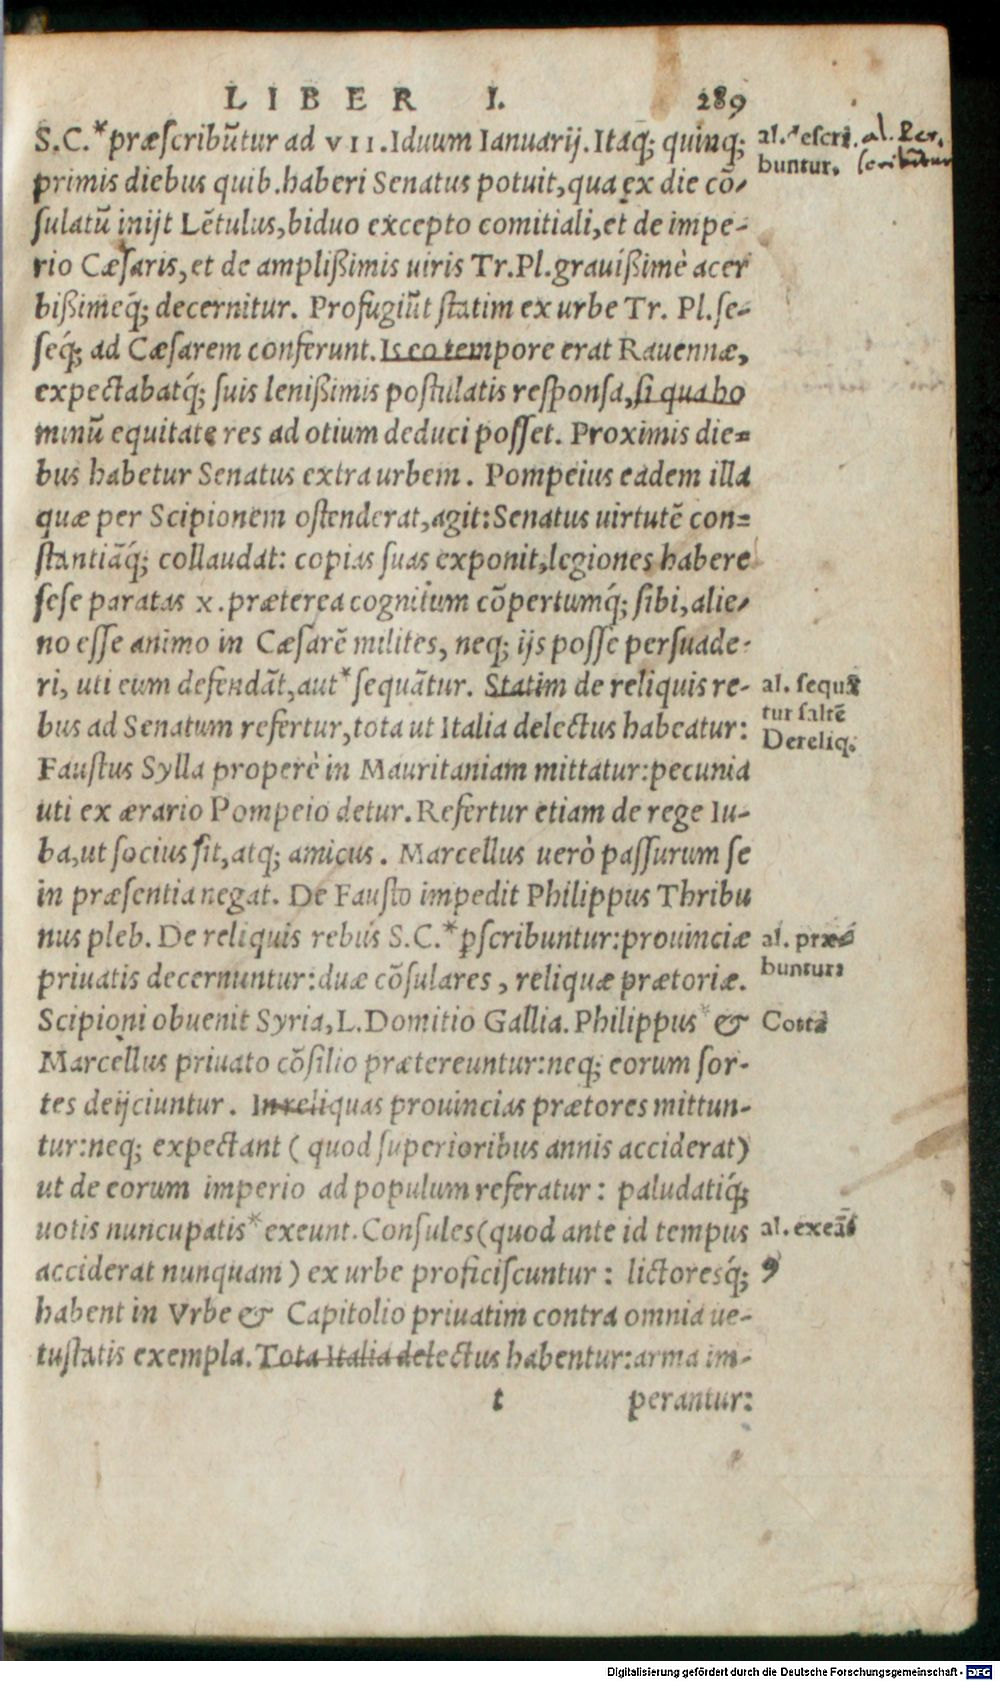 LIBER I. 289
S.C.*præscribũtur ad VII.Iduum Ianuarij.Itaq́; quinq;
al. rescri
buntur.
al. Per.
scribũtur
primis diebus quib.haberi Senatus potuit,qua ex die cõ-
sulatũ inijt Lẽtulus,biduo excepto comitiali,et de impe-
rio Cæsaris,et de amplißimis uiris Tr.Pl.grauißimè acer
bißimeq́; decernitur. Profugiũt statim ex urbe Tr. Pl.se-
seq́; ad Cæsarem conferunt.Is eo tempore erat Rauennæ,
expectabatq́; suis lenißimis postulatis responsa,si qua ho
minũ equitate res ad otium deduci posset. Proximis die=
bus habetur Senatus extra urbem. Pompeius eadem illa
quæ per Scipionem ostenderat,agit:Senatus uirtutẽ con=
stantiãq́; collaudat: copias suas exponit,legiones habere
sese paratas x.præterea cognitum cõpertumq́; sibi,alie-
no esse animo in Cæsarẽ milites, neq; ijs posse persuade-
ri, uti eum defendãt,aut*sequãtur. Statim de reliquis re-
al. sequũ
tur saltẽ
Dereliq.
bus ad Senatum refertur,tota ut Italia delectus habeatur:
Faustus Sylla properè in Mauritaniam mittatur:pecunia
uti ex ærario Pompeio detur. Refertur etiam de rege Iu-
ba,ut socius sit,atq; amicus. Marcellus uerò passurum se
in præsentia negat. De Fausto impedit Philippus Thribu
nus pleb. De reliquis rebus S.C.*pscribuntur:prouinciæ
al. præs
buntur:
priuatis decernuntur:duæ cõsulares, reliquæ prætoriæ.
Scipioni obuenit Syria,L.Domitio Gallia. Philippus* &
Cotta
Marcellus priuato cõsilio prætereuntur:neq; eorum sor-
tes deijciuntur. In reliquas prouincias prætores mittun-
tur:neq; expectant ( quod superioribus annis acciderat)
ut de eorum imperio ad populum referatur: paludatiq́;
uotis nuncupatis*exeunt.Consules(quod ante id tempus
al. exeãt
acciderat nunquam) ex urbe proficiscuntur: lictoresq́;
habent in Vrbe & Capitolio priuatim contra omnia ue-
tustatis exempla.Tota Italia delectus habentur:arma im-
t perantur:
Digitalisierung gefördert durch die Deutsche Forschungsgemeinschaft - DFG